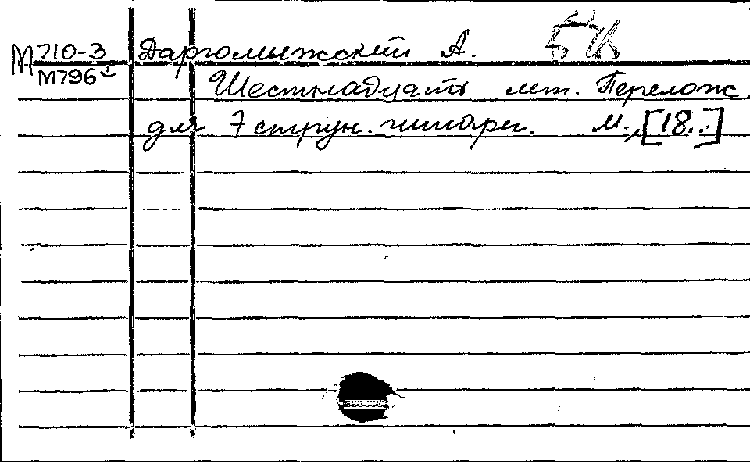 М 710-3 Даргомыжский А.
М796
Шестнадцать лет. Перелож.
для 7 струн. гитары. М., [18..]